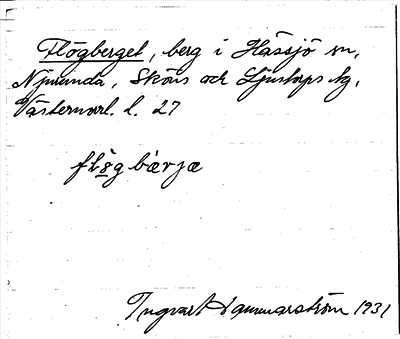 Flögberget, berg i Hässjö sn,
Njurunda, Sköns och Ljustorps tg,
Västernorrl. l. 27
flög bærjæ
Ingvart Hammarström 1931